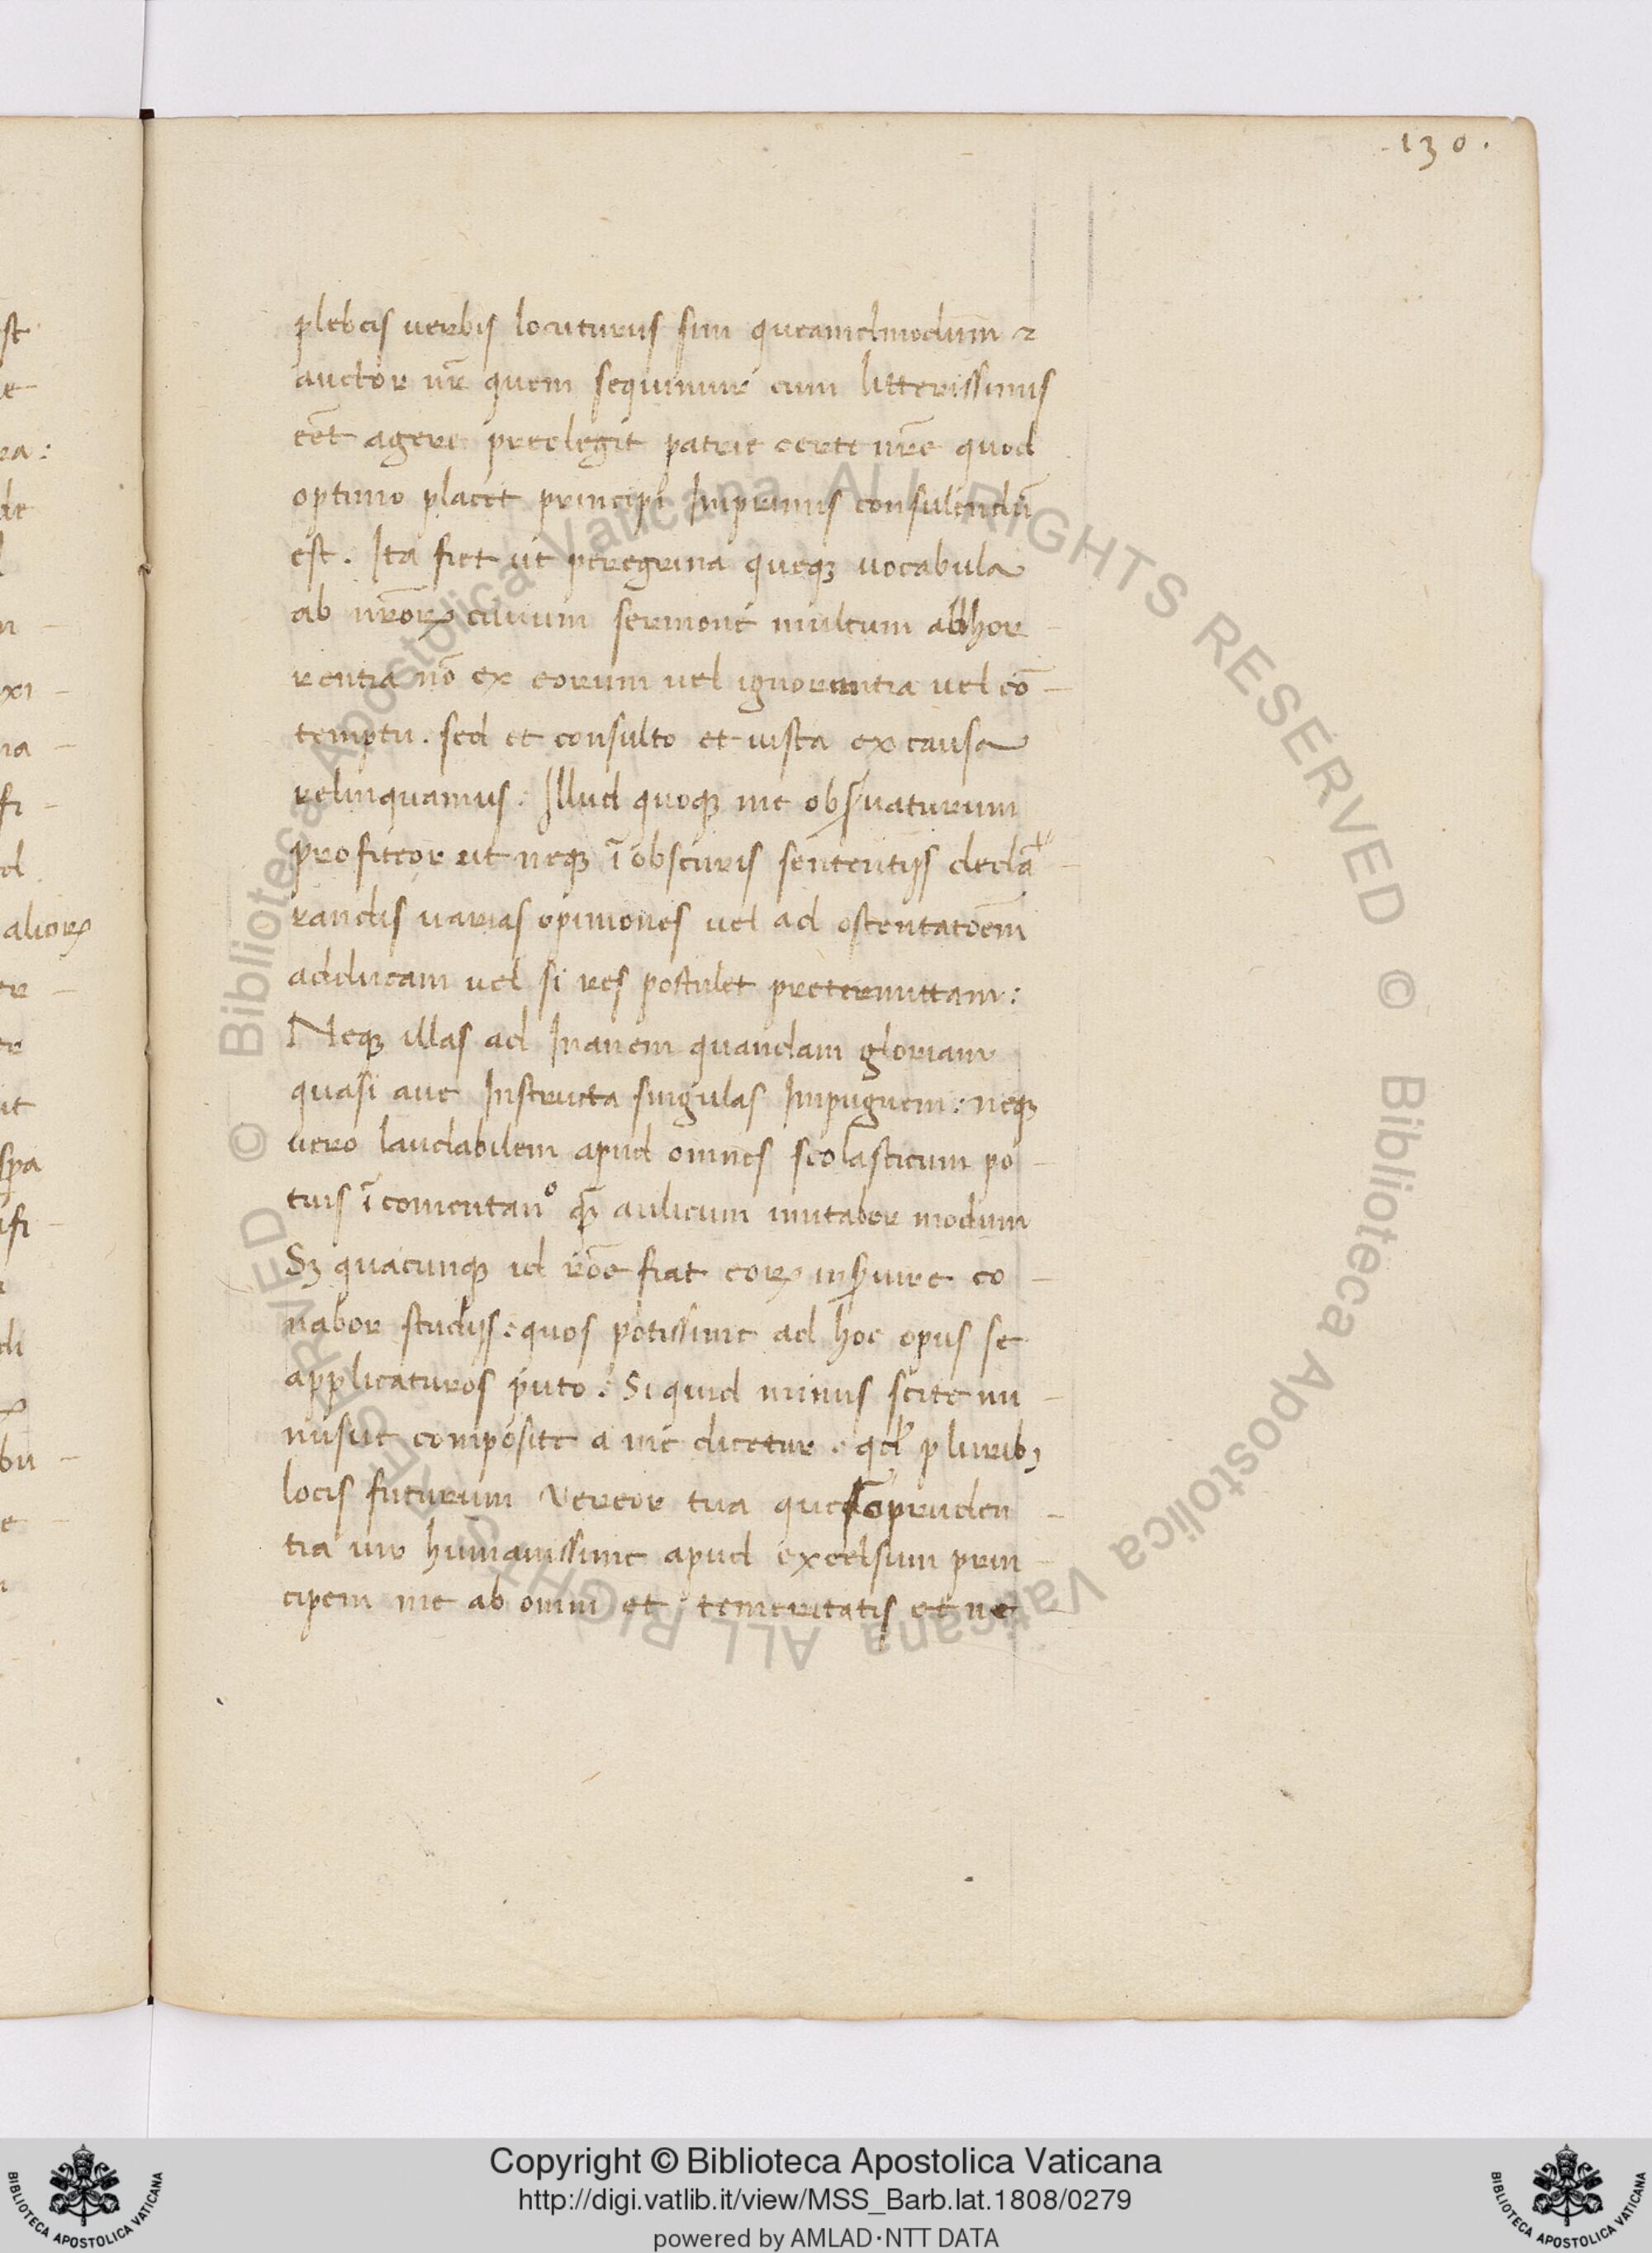 .130.
plebeis uerbis locuturus sim queamdmodum̄ ⁊
auctor nr̄ quem sequimur cum litterissimus
eēt agere preelegit patrie certe nr̄e quod
optimo placet principi Inprimis consulendū
est. Ita fiet ut peregrina queqꝫ uocabula
ab nr̄oꝝ ciuium sermone multum abhor-
rentia nō ex eorum uel ignorantia uel cō-
temptu. sed et consulto et iusta ex causa
relinquamus. Illud quoqꝫ me obſ̄uaturum
profiteor ut neqꝫ ī obscuris sententijs decla-
randis uarias opiniones uel ad ostentatōem
adducam uel si res postulet pretermittam:
Neqꝫ illas ad Inanem quandam gloriam
quasi aue Instructa singulas Impugnem: neqꝫ
uero laudabilem apud omnes scolasticum po-
tius ī comentanº qꝫ̄ aulicum imitabor modum
Sꝫ quacunqꝫ id rōe fiat eoꝝ inſ̄uire co-
nabor studijs: quos potissime ad hoc opus se
applicaturos puto. Si quid minus scite mi-
nusue composite a me dicetur. qd̛ pluribꝫ
locis futurum Vereor tua queso pruden-
tia uir humanissime apud excelsum prin-
cipem me ab omni et temeritatis et ne-
st
e
ra:
de
n-
xi-
na-
fi-
d
alioꝝ
er-
er
ut
ifi-
di
bu-
e
Copyright © Biblioteca Apostolica Vaticana
http://digi.vatlib.it/view/MSS_Barb.lat.1808/0279
powered by AMLAD·NTT DATA
BIBLIOTECA APOSTOLICA VATICANA
BIBLIOTECA APOSTOLICA VATICANA
© Biblioteca Apostolica Vaticana ALL RIGHTS RESERVED © Biblioteca Apostolica Vaticana ALL RIGHTS RESERVED